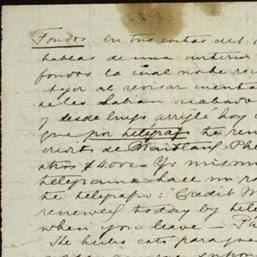 Fondos. En tus cartas del
hablas de una anterior
fondos la cual no he re
Ayer al revisar cuenta
se les habian acabado
y desde luego arreglé hoy
que por telégraf te ren
credito de Maitland, Phe
otros $4.000 - Yo mismo
telegrama hace un ra
he telegrafio: "Credit M
renewed today by tele
when you leave - Pa
The hides cats para que